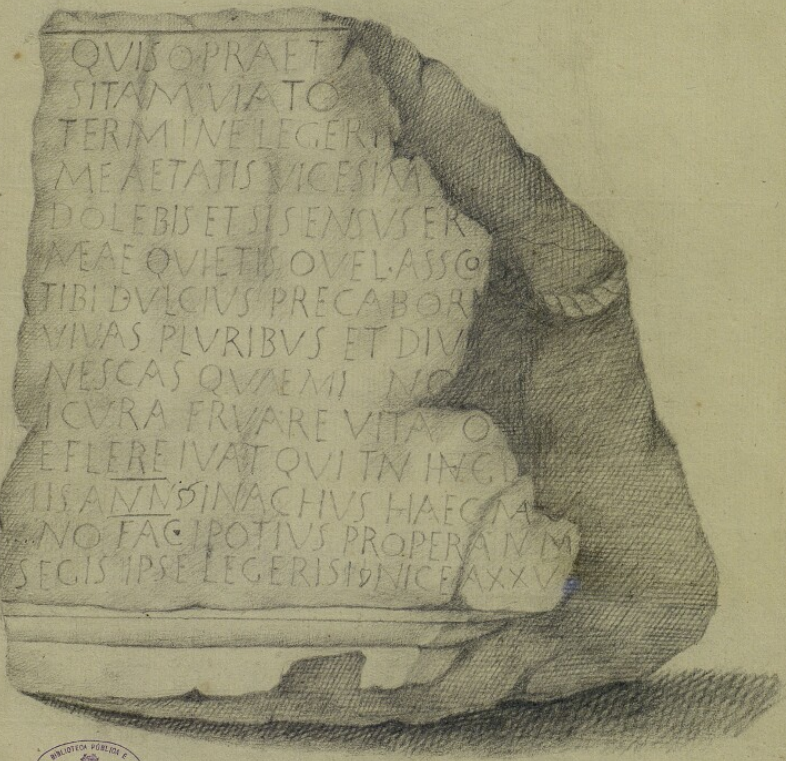 QVISOPRAET
SITAM VIATO
TERMINE LEGERI
MEAETATIS VICESIM
DOLEBIS ET SI SENSVS ER
MEAE QVIETIS OVEL·ASSO
TIBI DVLCIVS PRECABOR
VIVAS PLVRIBVS ET DIV
NESCAS QVAEMI NO
ICVRA FRVARE VITA O
EFLERE IVAT QVI TN
IIS ANN INACHVS HAEC
NO FAC POTIVS PROPERA
SEGIS IPSE LEGERIS NICE AXXV
BIBLIOTECA PÚBLICA E